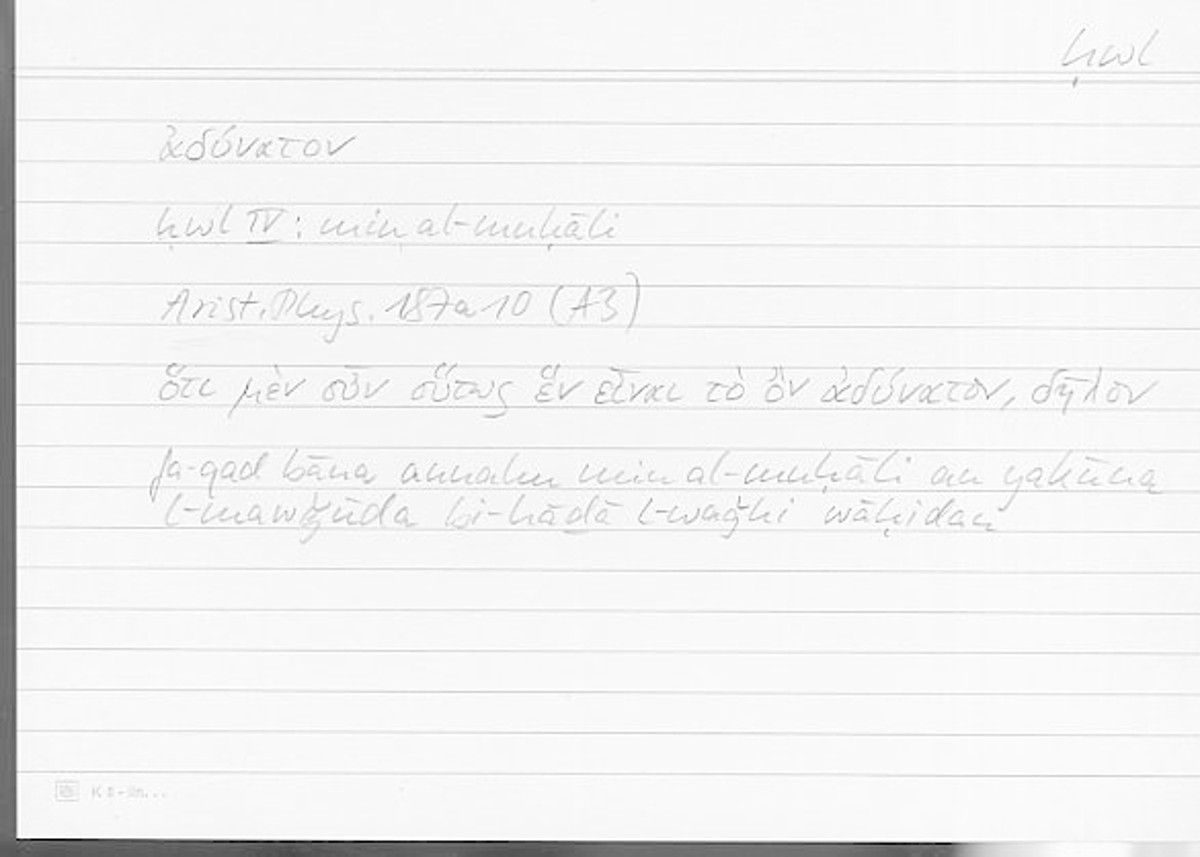 ḥwl
ἀδύνατον
ḥwl IV: min al-muḥāli
Arist. Phys. 187a10 (A3)
ὅτι μὲν οὖν οὕτως ἓν εἶναι τὸ ὂν ἀδύνατον, δῆλον
fa-qad bāna annahu min al-muḥāli an yakūna
l-mawǧūda bi-hāḏā l-waǧhi wāḥidan